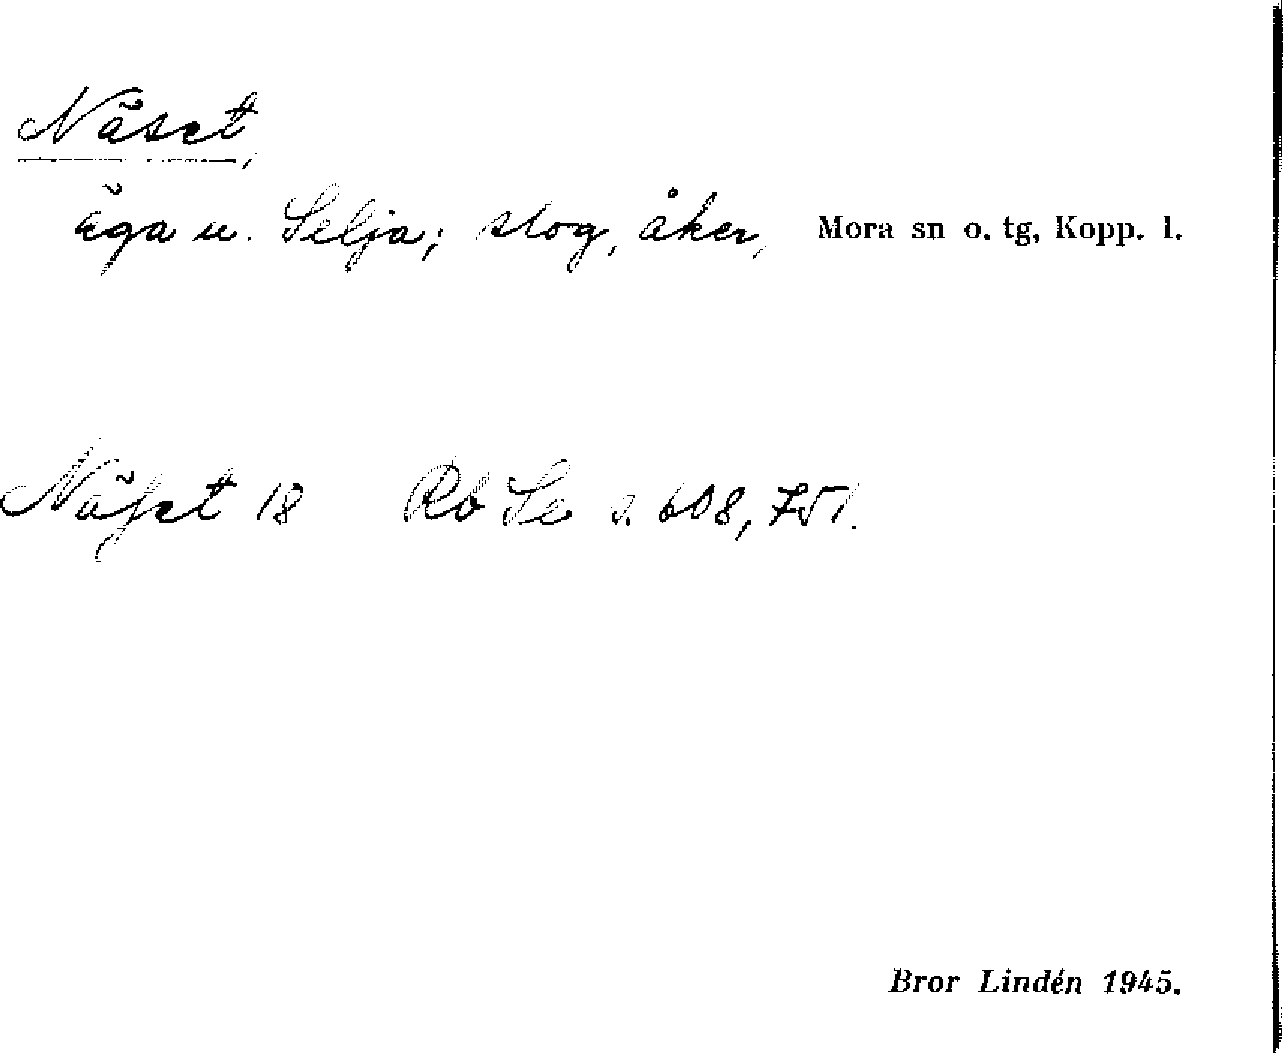 Näset,
äga u. Selja; slog, åker, Mora sn o. tg, Kopp. l.
Näset 18 Rb Se s. 608, 751.
Bror Lindén 1945.